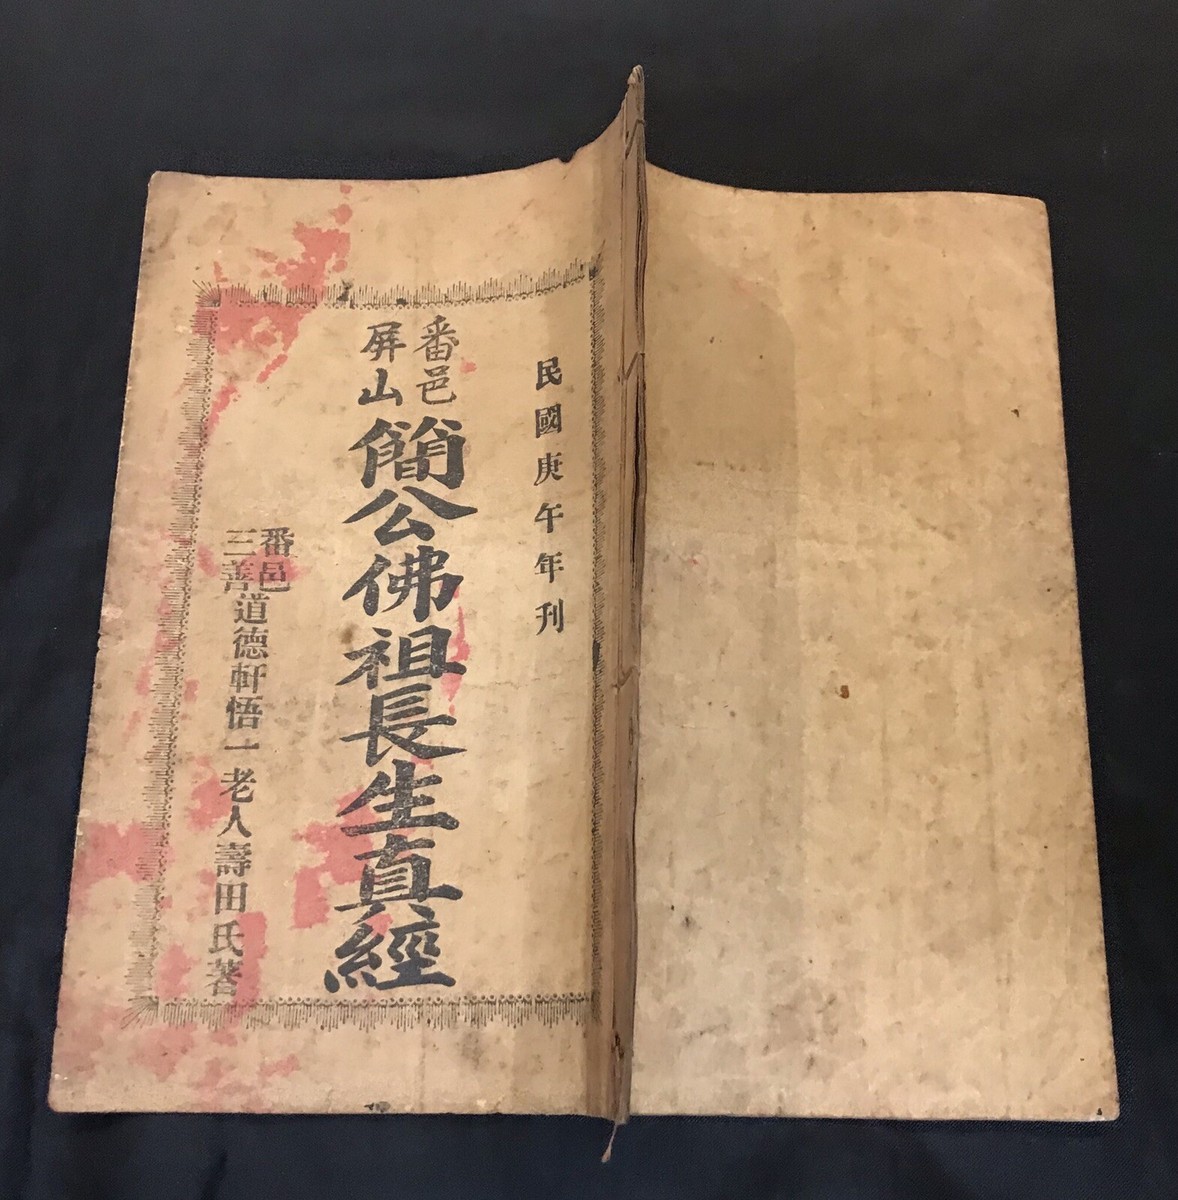 民國庚午年刊
番邑
屏山
簡公佛祖長生真經
番邑
三善
道德軒悟一老人壽田氏著